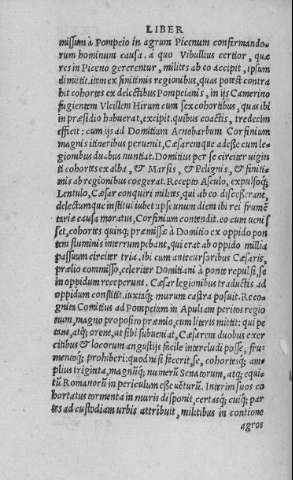 LIBER
missum à Pompeio in agrum Picenum confirmando-
rum hominum causa. a quo Vibullius certior, quæ
res in Piceno gererentur, milites ab eo accipit, ipsum
dimittit. item ex finitimis regionibus, quas potest contra
hit cohortes ex delectibus Pompeianis, in ijs Camerino
fugientem Vlcillem Hirum cum sex cohortibus, quas ibi
in præsidio habuerat, excipit. quibus coactis, tredecim
effecit: cum ijs ad Domitium Aenobarbum Corfinium
magnis itineribus peruenit, Cæsaremque adesse cum le
gionibus duabus nuntiat. Domitius per se circiter uigin
ti cohortes ex alba, & Marsis, & Pelignis, & finiti-
mis ab regionibus coegerat. Recepto Asculo, expulsoq;
Lentulo, Cæsar conquiri milites, qui ab eo discesserant,
delectumque institui iubet ipse unum diem ibi rei frumē
tariæ causa moratus, Corfinium contendit. eo cum uenis
set, cohortes quinq; præmissæ à Domitio ex oppido pon
tem fluminis interrumpebant, qui erat ab oppido millia
passuum circiter tria. ibi cum antecursoribus Cæsaris,
prælio commisso, celeriter Domitiani à ponte repulsi, se
in oppidum receperunt. Cæsar legionibus traductis ad
oppidum constitit. iuxtaq; murum castra posuit. Reco-
gnita Domitius ad Pompeium in Apuliam peritos regio
num, magno proposito præmio, cum literis mittit: qui pe
tant, atq; orent, ut sibi subueniat, Cæsarem duobus exer
citibus & locorum angustijs facile intercludi posse, fru
mentoq; prohiberi: quod nisi fecerit, se, cohortesq; am
plius triginta, magnūq; numerū Senatorum, atq; equi-
tū Romanorū in periculum esse uēturū. Interim suos co
hortatus tormenta in muris disponit, certasq; cuiq; par
tes ad custodiam urbis attribuit, militibus in contione
agros